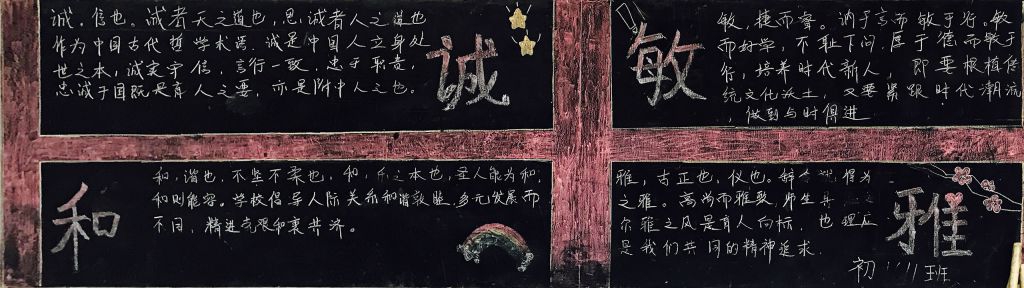 诚，信也。诚者天之道也，思诚者人之道也
作为中国古代哲学术语，诚是中国人立身处
世之本，诚实守信，言行一致，忠于职责，
忠诚于国既是育人之要，亦是附中人之也。
诚
敏，捷而审。讷于言而敏于行。敏
而好学，不耻下问，厚于德而敏于
行，培养时代新人，即要根植传
统文化沃土，又要紧跟时代潮流
，做到与时俱进
敏
和，谐也，不坚不柔也，和，之本也，人能为和，
和则能容。学校倡导人际关系和谐敦睦，多元发展而
不同，精进克艰和衷共济。
和
雅，古正也，仪也。得为
之雅。高尚而雅致，师生具
尔雅之风是育人向标，也理应
是我们共同的精神追求
雅
初 班